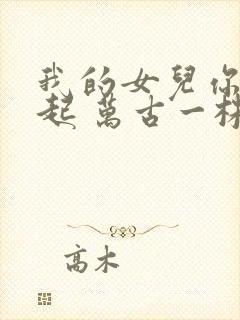 我的女兒你
起萬古一
高木